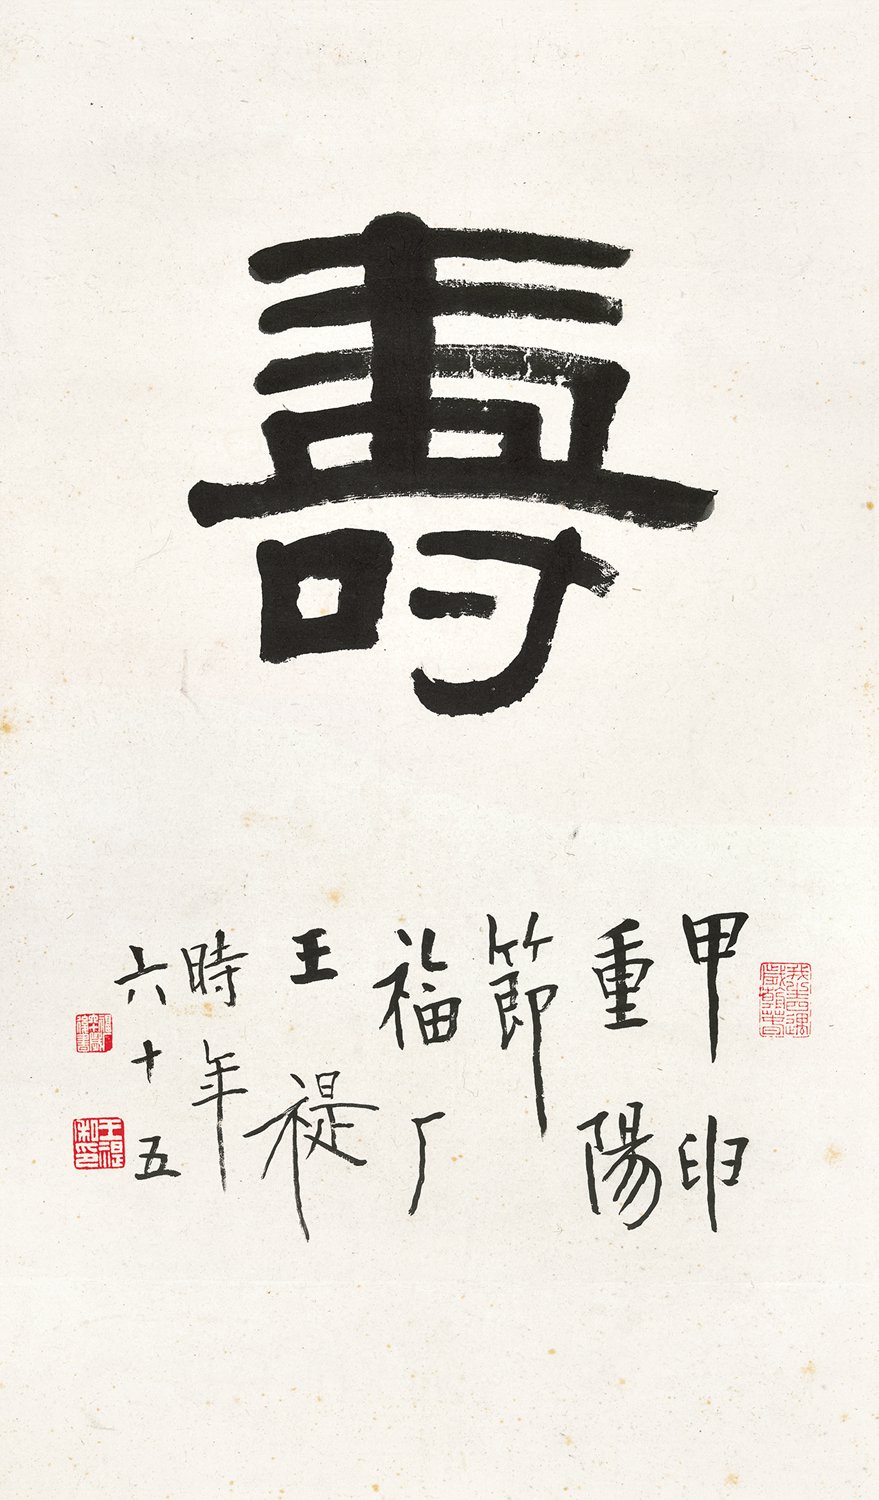 壽
甲申
重陽
節
福厂
王禔
時年
六十五
王禔私印